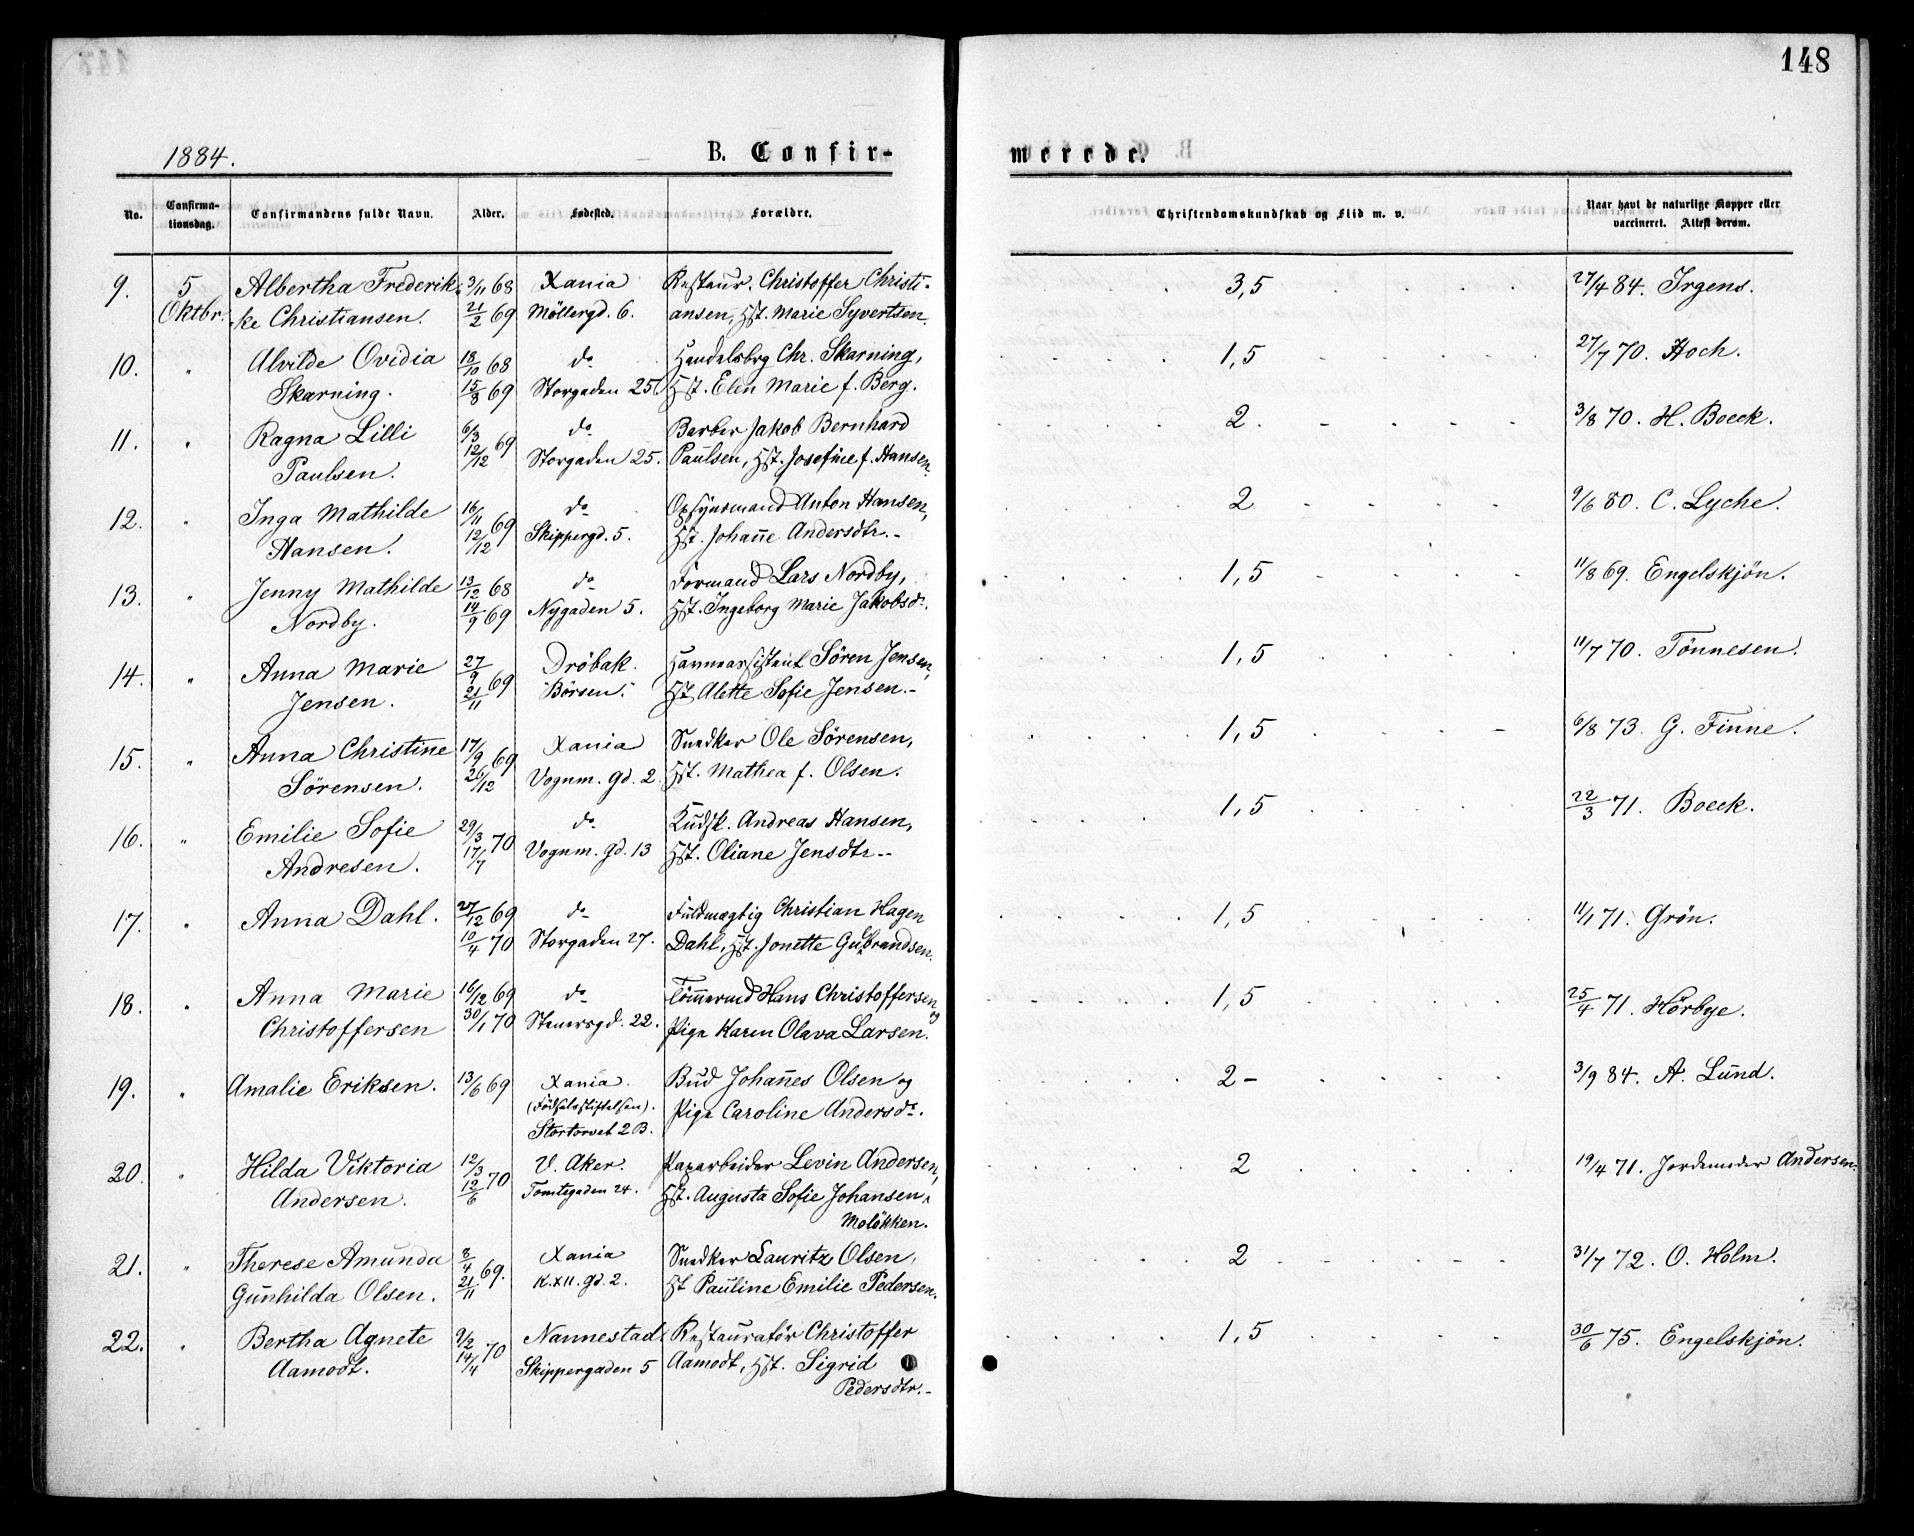 148
1884. B. Confir- merede.
No. Confirma-tionsdag. Confirmandens fulde Navn. Alder. Fødested. Forældre. Christendomskundskab og Flid m. v. Naar havt de naturlige Kopper eller vaccineret. Attest derom.
9. 5 Albertha Frederik- 3/11 68 Xania Restaur. Christoffer Christi- 3,5 27/4 84. Irgens.
Oktbr. ke Christiansen. 21/2 69 Möllergd. 6. ansen, Hst. Marie Syvertsen.
10. " Alvilde Ovidia 18/10 68 do Handelsbg Chr. Skarning, 1,5 27/7 70. Hoch.
Skarning. 15/8 69 Storgaden 25. Hst. Elen Marie f. Berg.
11. " Ragna Lilli 6/3 69 do Barber Jakob Bernhard 2 3/8 70. H. Boeck.
Paulsen. 12/12 Storgaden 25. Paulsen, Hst. Josefine f. Hansen.
12. " Inga Mathilde 16/11 69 do Opsynsmand Anton Hansen, 2 9/6 80. C. Lyche.
Hansen. 12/12 Skippergd. 5. Hst. Johanne Andersdtr.-
13. " Jenny Mathilde 13/12 68 do Formand Lars Nordby, 1,5 11/8 69. Engelskjön.
Nordby. 14/9 69 Nygaden 5. Hst. Ingeborg Marie Jakobsd.
14. " Anna Marie 27/9 69 Dröbak. Havneassistent Sören Jensen, 1,5 11/7 70. Tönnesen.
Jensen. 21/11 "Börsen". Hst. Alette Sofie Jensen.-
15. " Anna Christine 17/9 69 Xania Snedker Ole Sörensen, 1,5 6/8 73. G. Finne.
Sörensen. 26/12 Vognm. gd. 2. Hst. Mathea f. Olsen.
16. " Emilie Sofie 29/3 70 do Kudsk. Andreas Hansen, 1,5 22/3 71. Boeck.
Andresen. 17/7 Vognm. gd. 13 Hst. Oliane Jensdtr--
17. " Anna Dahl. 27/12 69 do Fuldmægtig Christian Hagen 1,5 11/1 71. Grön.
10/4 70 Storgaden 27. Dahl, Hst. Jonette Gulbrandsen.
18. " Anna Marie 16/12 69 do Tömmermd Hans Christoffersen og 1,5 25/4 71. Hörbye.
Christoffersen 30/1 70 Stenersgd. 22. Pige Karen Olava Larsen.
19. " Amalie Eriksen. 13/6 69 Xania. Bud Johannes Olsen og 2- 3/9 84. A. Lund.
(Födselsstiftelsen). Pige Caroline Andersd.
Stortorvet 2 B.
20. " Hilda Viktoria 12/3 70 V. Aker. Paparbeider Levin Andersen, 2 19/4 71. Jordemoder Andersen.
Andersen. 12/6 Tomtegaden 24. Hst. Augusta Sofie Johansen
Molökken.
21. " Therese Amunda 8/4 69. Xania Snedker Lauritz Olsen, 2 31/7 72. O. Holm.
Gunhilda Olsen. 21/11 K. XII. gd. 2. Hst Pauline Emilie Pedersen.
22. " Bertha Agnete 9/2 70 Nannestad Restauratör Christoffer 1,5 30/6 75. Engelskjön.
Aamodt. 14/4 Skippergaden 5 Aamodt, Hst. Sigrid
Pedersdtr.-